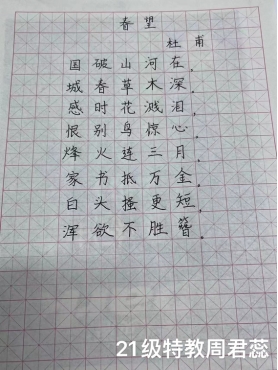 春望
杜甫
国破山河在,
城春草木深.
感时花溅泪,
恨别鸟惊心.
烽火连三月,
家书抵万金.
白头搔更短,
浑欲不胜簪.
21级特教周君蕊